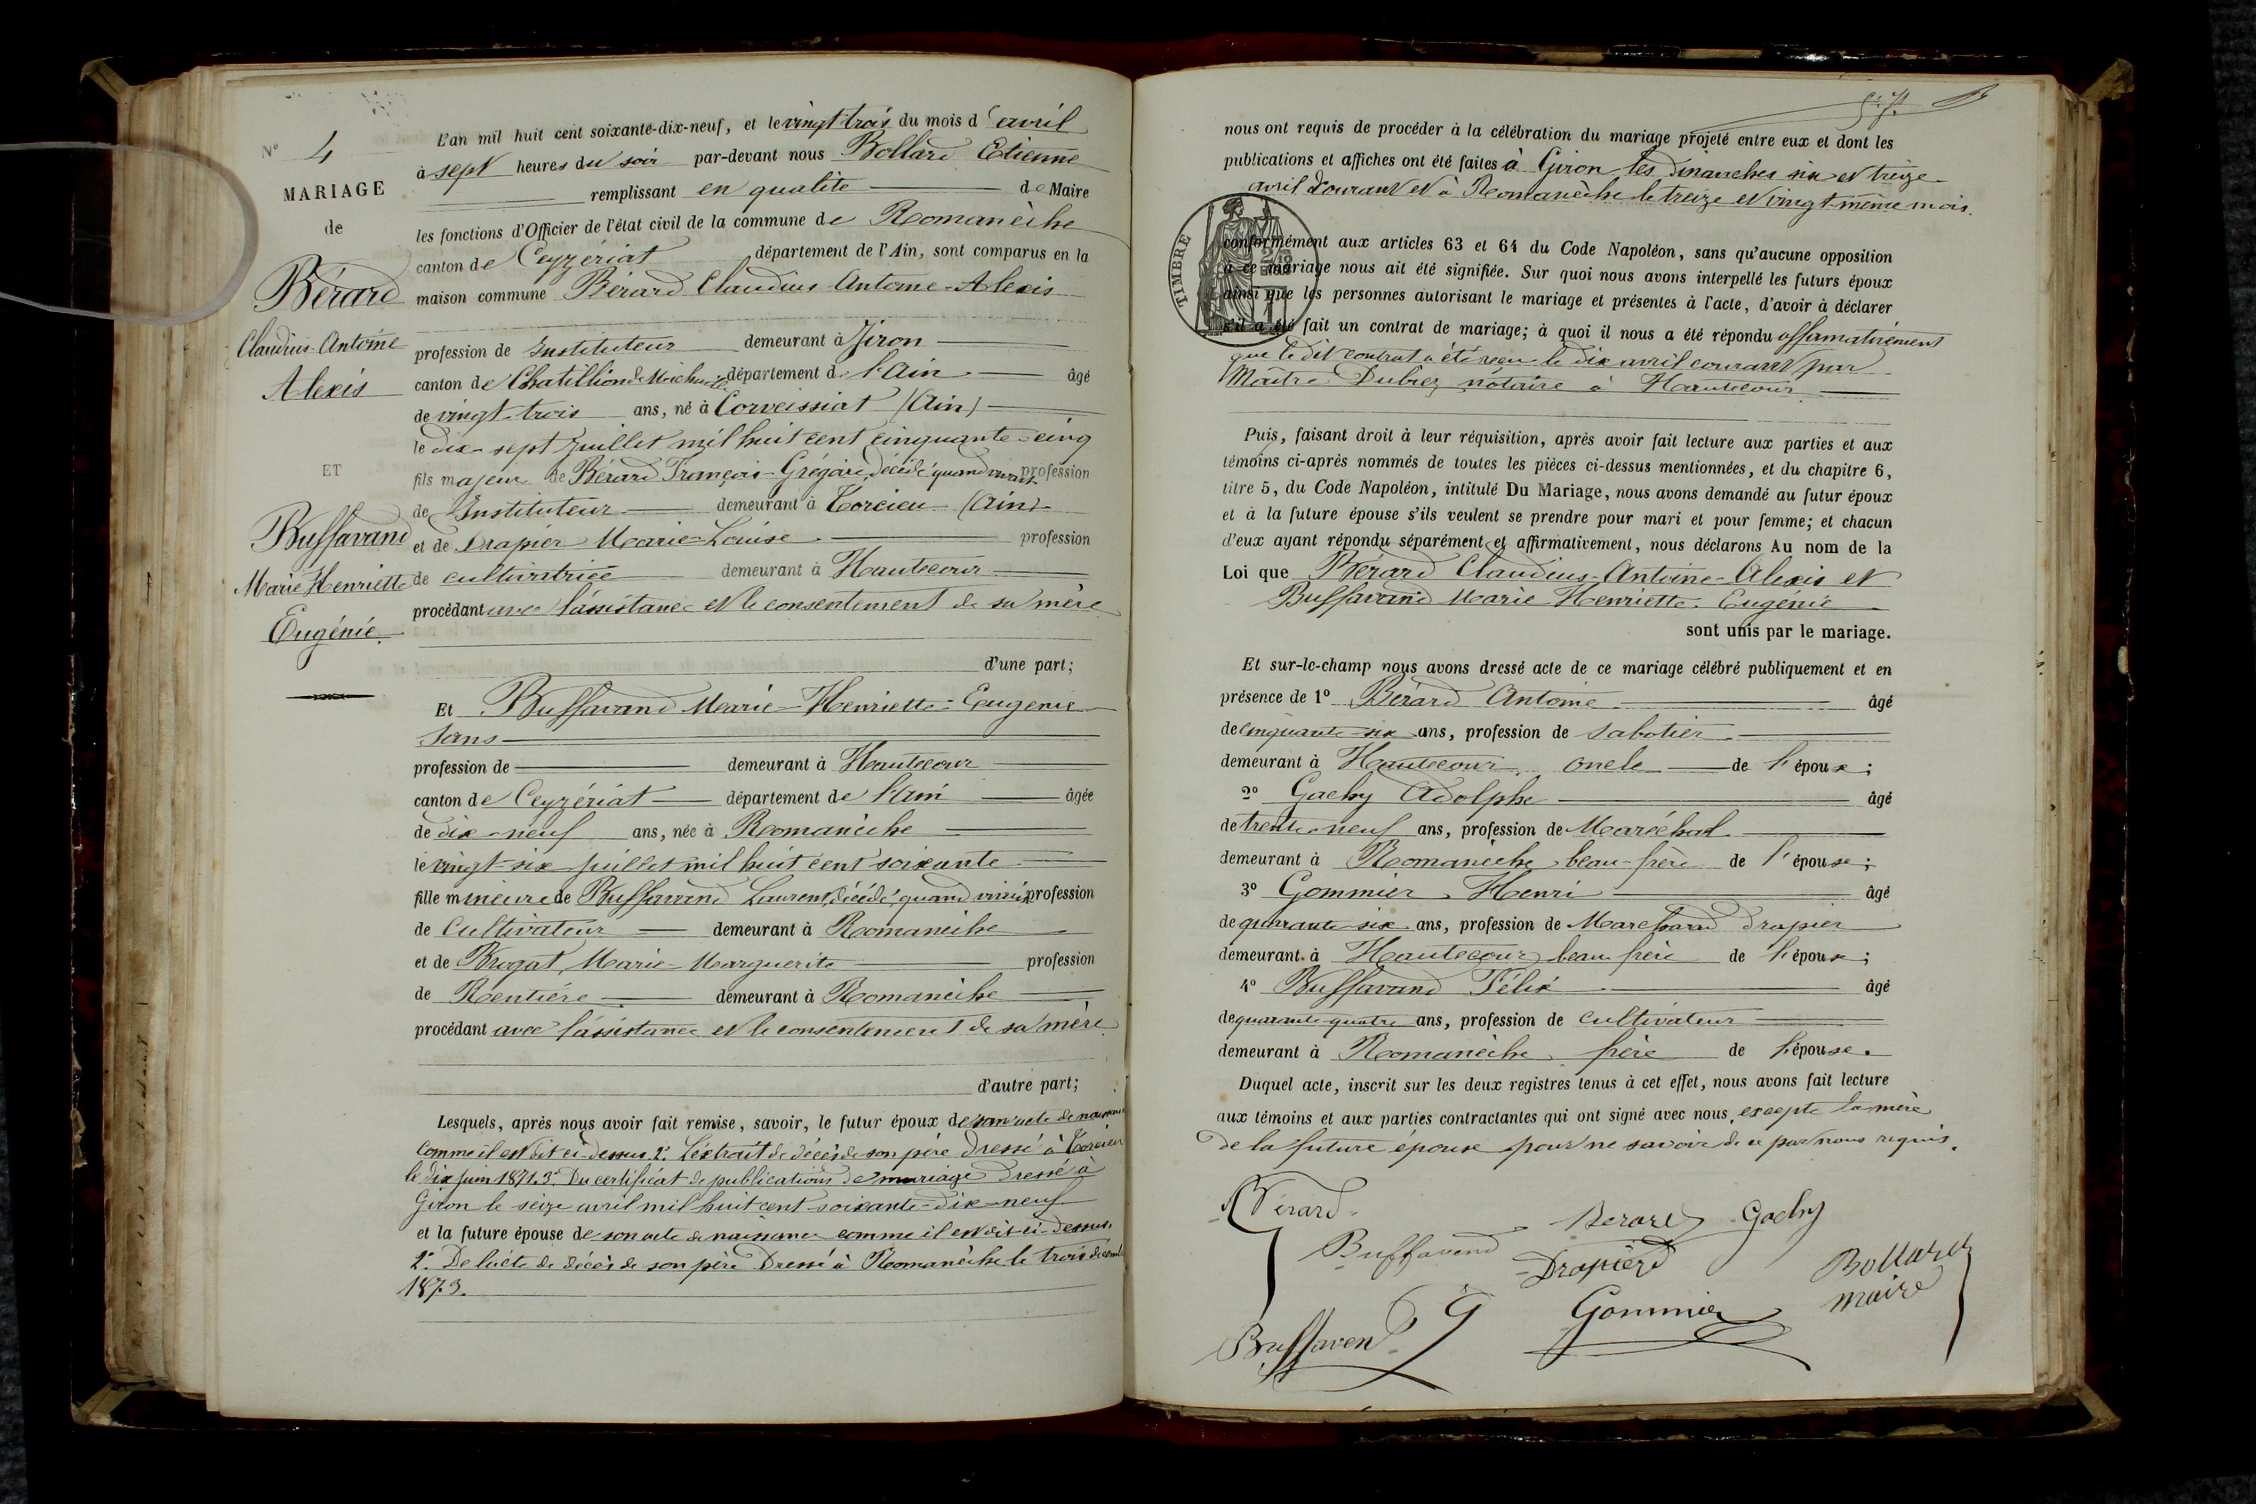 N° 4
MARIAGE
de
Bérard
Claudius-Antoine
Alexis
ET
Buffavand
Marie Henriette
Eugénie.
L'an mil huit cent soixante-dix-neuf, et le vingt trois du mois d'avril
à sept heures du soir par-devant nous Bollard Etienne
remplissant en qualité de Maire
les fonctions d'Officier de l'état civil de la commune de Romanèche
canton de Ceyzériat département de l'Ain, sont comparus en la
maison commune Bérard Claudius-Antoine-Alexis
profession de Instituteur demeurant à Jiron
canton de Chatillion de département de l'Ain âgé
de vingt-trois ans, né à Corveissiat (Ain)
le dix-sept Juillet mil huit cent cinquante-cinq
fils majeur de Bérard François-Grégoire, décédé quand vivait profession
de Instituteur demeurant à Torcieu (Ain)
et de Drapier Marie-Louise profession
de cultivatrice demeurant à Hautecour
procédant avec l'assistance et le consentement de sa mère
d'une part;
Et Buffavand Marie-Henriette-Eugenie
Sans
profession de demeurant à Hautecour
canton de Ceyzériat département de l'Ain âgée
de dix-neuf ans, née à Romanèche
le vingt-six juillet mil huit cent soixante
fille mineure de Buffavand Laurent, décédé, quand vivait profession
de Cultivateur demeurant à Romanèche
et de Brogat Marie-Marguerite profession
de Rentière demeurant à Romanèche
procédant avec l'assistance et le consentement de sa mère
d'autre part;
Lesquels, après nous avoir fait remise, savoir, le futur époux de son acte de naissance
comme il est dit ci-dessus 2° L'extrait de décès de son père dressé à Torcieu
le dix Juin 1871. 3° Du certificat de publications de mariage Dressé à
Giron le seize avril mil huit cent soixante-dix-neuf
et la future épouse de son acte de naissance comme il est dit ci-dessus.
2°. De l'acte de décès de son père Dressé à Romanèche le trois
1873.
57.
nous ont requis de procéder à la célébration du mariage projeté entre eux et dont les
publications et affiches ont été faites à Giron les dimanches six et treize
avril courant et à Romanèche le treize et vingt même mois.
TIMBRE
conformément aux articles 63 et 64 du Code Napoléon, sans qu'aucune opposition
à ce mariage nous ait été signifiée. Sur quoi nous avons interpellé les futurs époux
ainsi que les personnes autorisant le mariage et présentes à l'acte, d'avoir à déclarer
s'il a été fait un contrat de mariage; à quoi il nous a été répondu affirmativement
que le dit contrat a été reçu le dix avril courant par
Maître Dubiez nétaire à Hautecour
Puis, faisant droit à leur réquisition, après avoir fait lecture aux parties et aux
témoins ci-après nommés de toutes les pièces ci-dessus mentionnées, et du chapitre 6,
titre 5, du Code Napoléon, intitulé Du Mariage, nous avons demandé au futur époux
et à la future épouse s'ils veulent se prendre pour mari et pour femme; et chacun
d'eux ayant répondu séparément et affirmativement, nous déclarons Au nom de la
Loi que Bérard Claudius-Antoine-Alexis et
Buffavand Marie Henriette-Eugénie
sont unis par le mariage.
Et sur-le-champ nous avons dressé acte de ce mariage célébré publiquement et en
présence de 1° Bérard Antoine âgé
de cinquante-six ans, profession de Sabotier
demeurant à Hautecour, oncle de l'époux;
2° Gachy Adolphe âgé
de trente-neuf ans, profession de Maréchal
demeurant à Romanèche beau-frère de l'épouse;
3° Gommier Henri âgé
de quarante-six ans, profession de Marchand Drapier
demeurant à Hautecour beau frère de l'époux;
4° Buffavand Félix âgé
de quarante-quatre ans, profession de cultivateur
demeurant à Romanèche, frère de l'épouse.
Duquel acte, inscrit sur les deux registres tenus à cet effet, nous avons fait lecture
aux témoins et aux parties contractantes qui ont signé avec nous, excepté la mère
de la future épouse pour ne savoir de ce par nous requis.
Bérard
Berard
Gachy
Buffavend
Drapier
Bollard
maire
Buffaven
Gommier